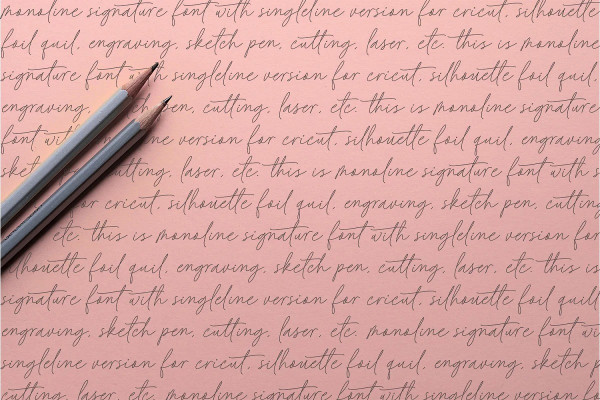 monoline signature font with singleline version for cricut, silhouette
foil quil, engraving, sketch pen, cutting, laser, etc. this is monoline
signature font with singleline version for cricut, silhouette foil quil,
engraving, pen, cutting, laser, etc. this is monoline signature
font with version for cricut, silhouette foil quil, engraving
cutting, laser, etc. this is monoline signature font with
for cricut, silhouette foil quil, engraving, sketch pen, cutting
etc. this is monoline signature font with singleline version for
silhouette foil quil, engraving, sketch pen, cutting, laser, etc. this is
signature font with singleline version for cricut, silhouette foil quill
engraving, sketch pen, cutting, laser, etc. monoline signature font with
singleline version for cricut, silhouette foil quil, engraving, sketch
cutting, laser, etc. monoline signature font with singleline version for